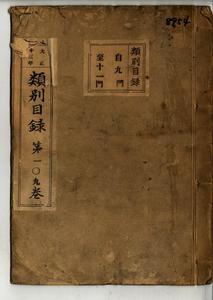 8854
類別目録
自九門
至十一門
大正
類別目録
第一〇九巻